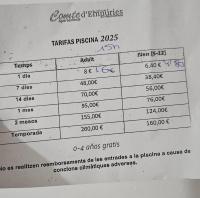 Comte d'Empúries
TARIFAS PISCINA 2025
15h
Temps Adult Nen (5-12)
1 dia 8 € 6€ 6,40 €
7 dies 48,00€ 38,40€
14 dies 70,00€ 56,00€
1 mes 95,00€ 76,00€
2 mesos 155,00€ 124,00€
Temporada 200,00 € 160,00 €
0-4 años gratis
No es realitzen reemborsaments de les entrades a la piscina a causa de
condicions climàtiques adverses.